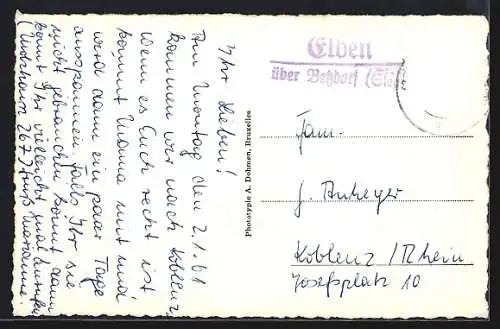 Ihr Lieben!
Am Montag den 2.1.61
kommen wir nach Koblenz,
wenn es Euch recht ist
kommt Mama mit und
wird dann ein paar Tage
ausspannen falls Ihr sie
nicht gebrauchen könnt dann
könnt Ihr vielleicht mal anrufen
267) Gruß Marianne.
Elben
über Betzdorf (Sieg)
Fam.
Koblenz / Rhein
Josefsplatz 10
Phototypie A. Dohmen, Bruxelles